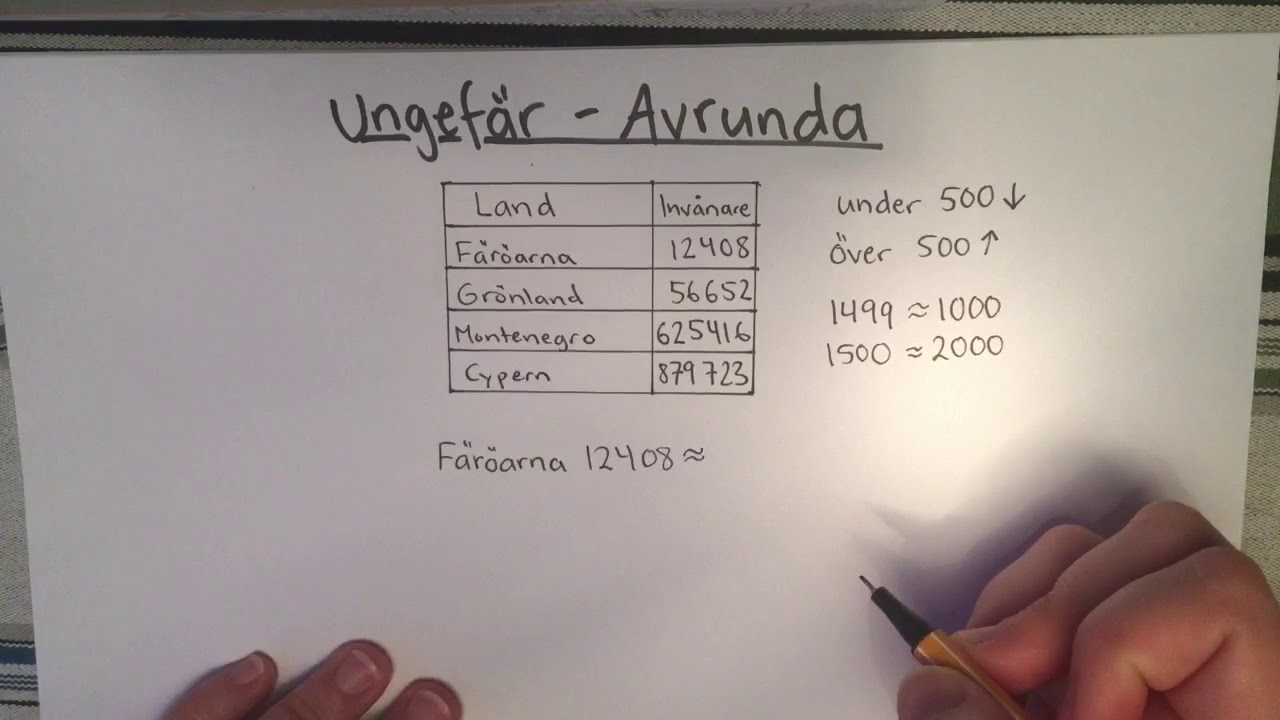 Ungefär - Avrunda
Land Invånare
Färöarna 12408
Grönland 56652
Montenegro 625416
Cypern 879723
under 500 ↓
över 500 ↑
1499 ≈ 1000
1500 ≈ 2000
Färöarna 12408 ≈